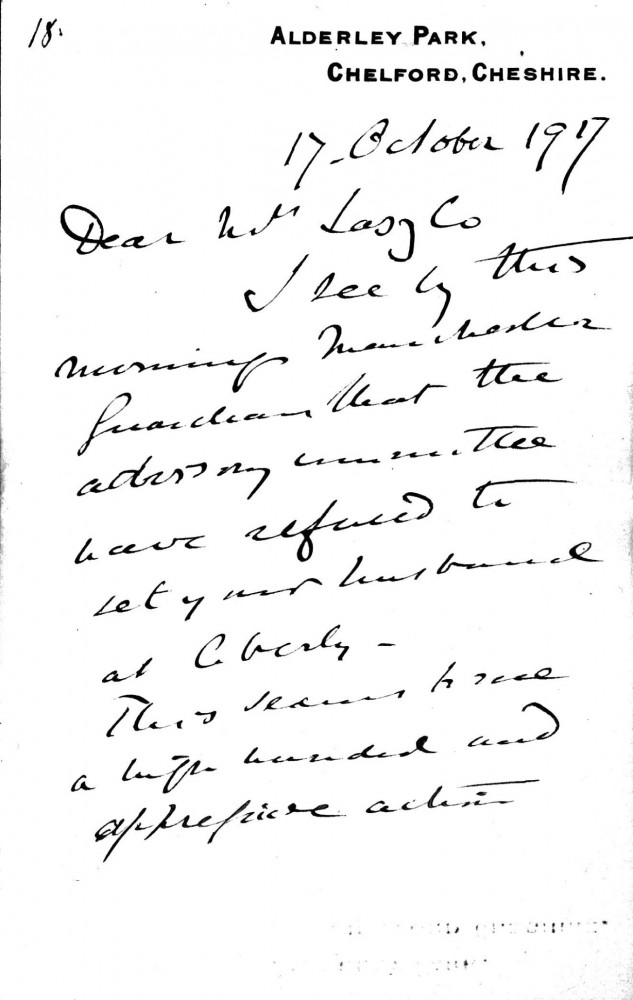 18.
ALDERLEY PARK,
CHELFORD, CHESHIRE.
17. October 1917
Dear Mrs Laszlo
I see by this
morning Manchester
Guardian that the
advisory committee
have refused to
set your husband
at liberty –
This seems to me
a high handed and
oppressive action